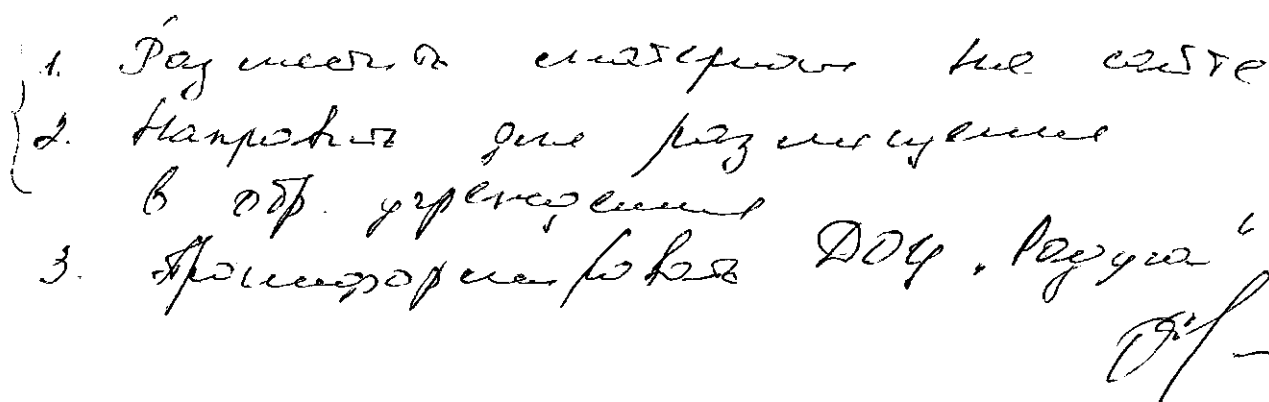 1. Разместить материал на сайте
2. Направить для размещения
в обр. учреждения
3. Проинформировать ДОЦ "Радуга"